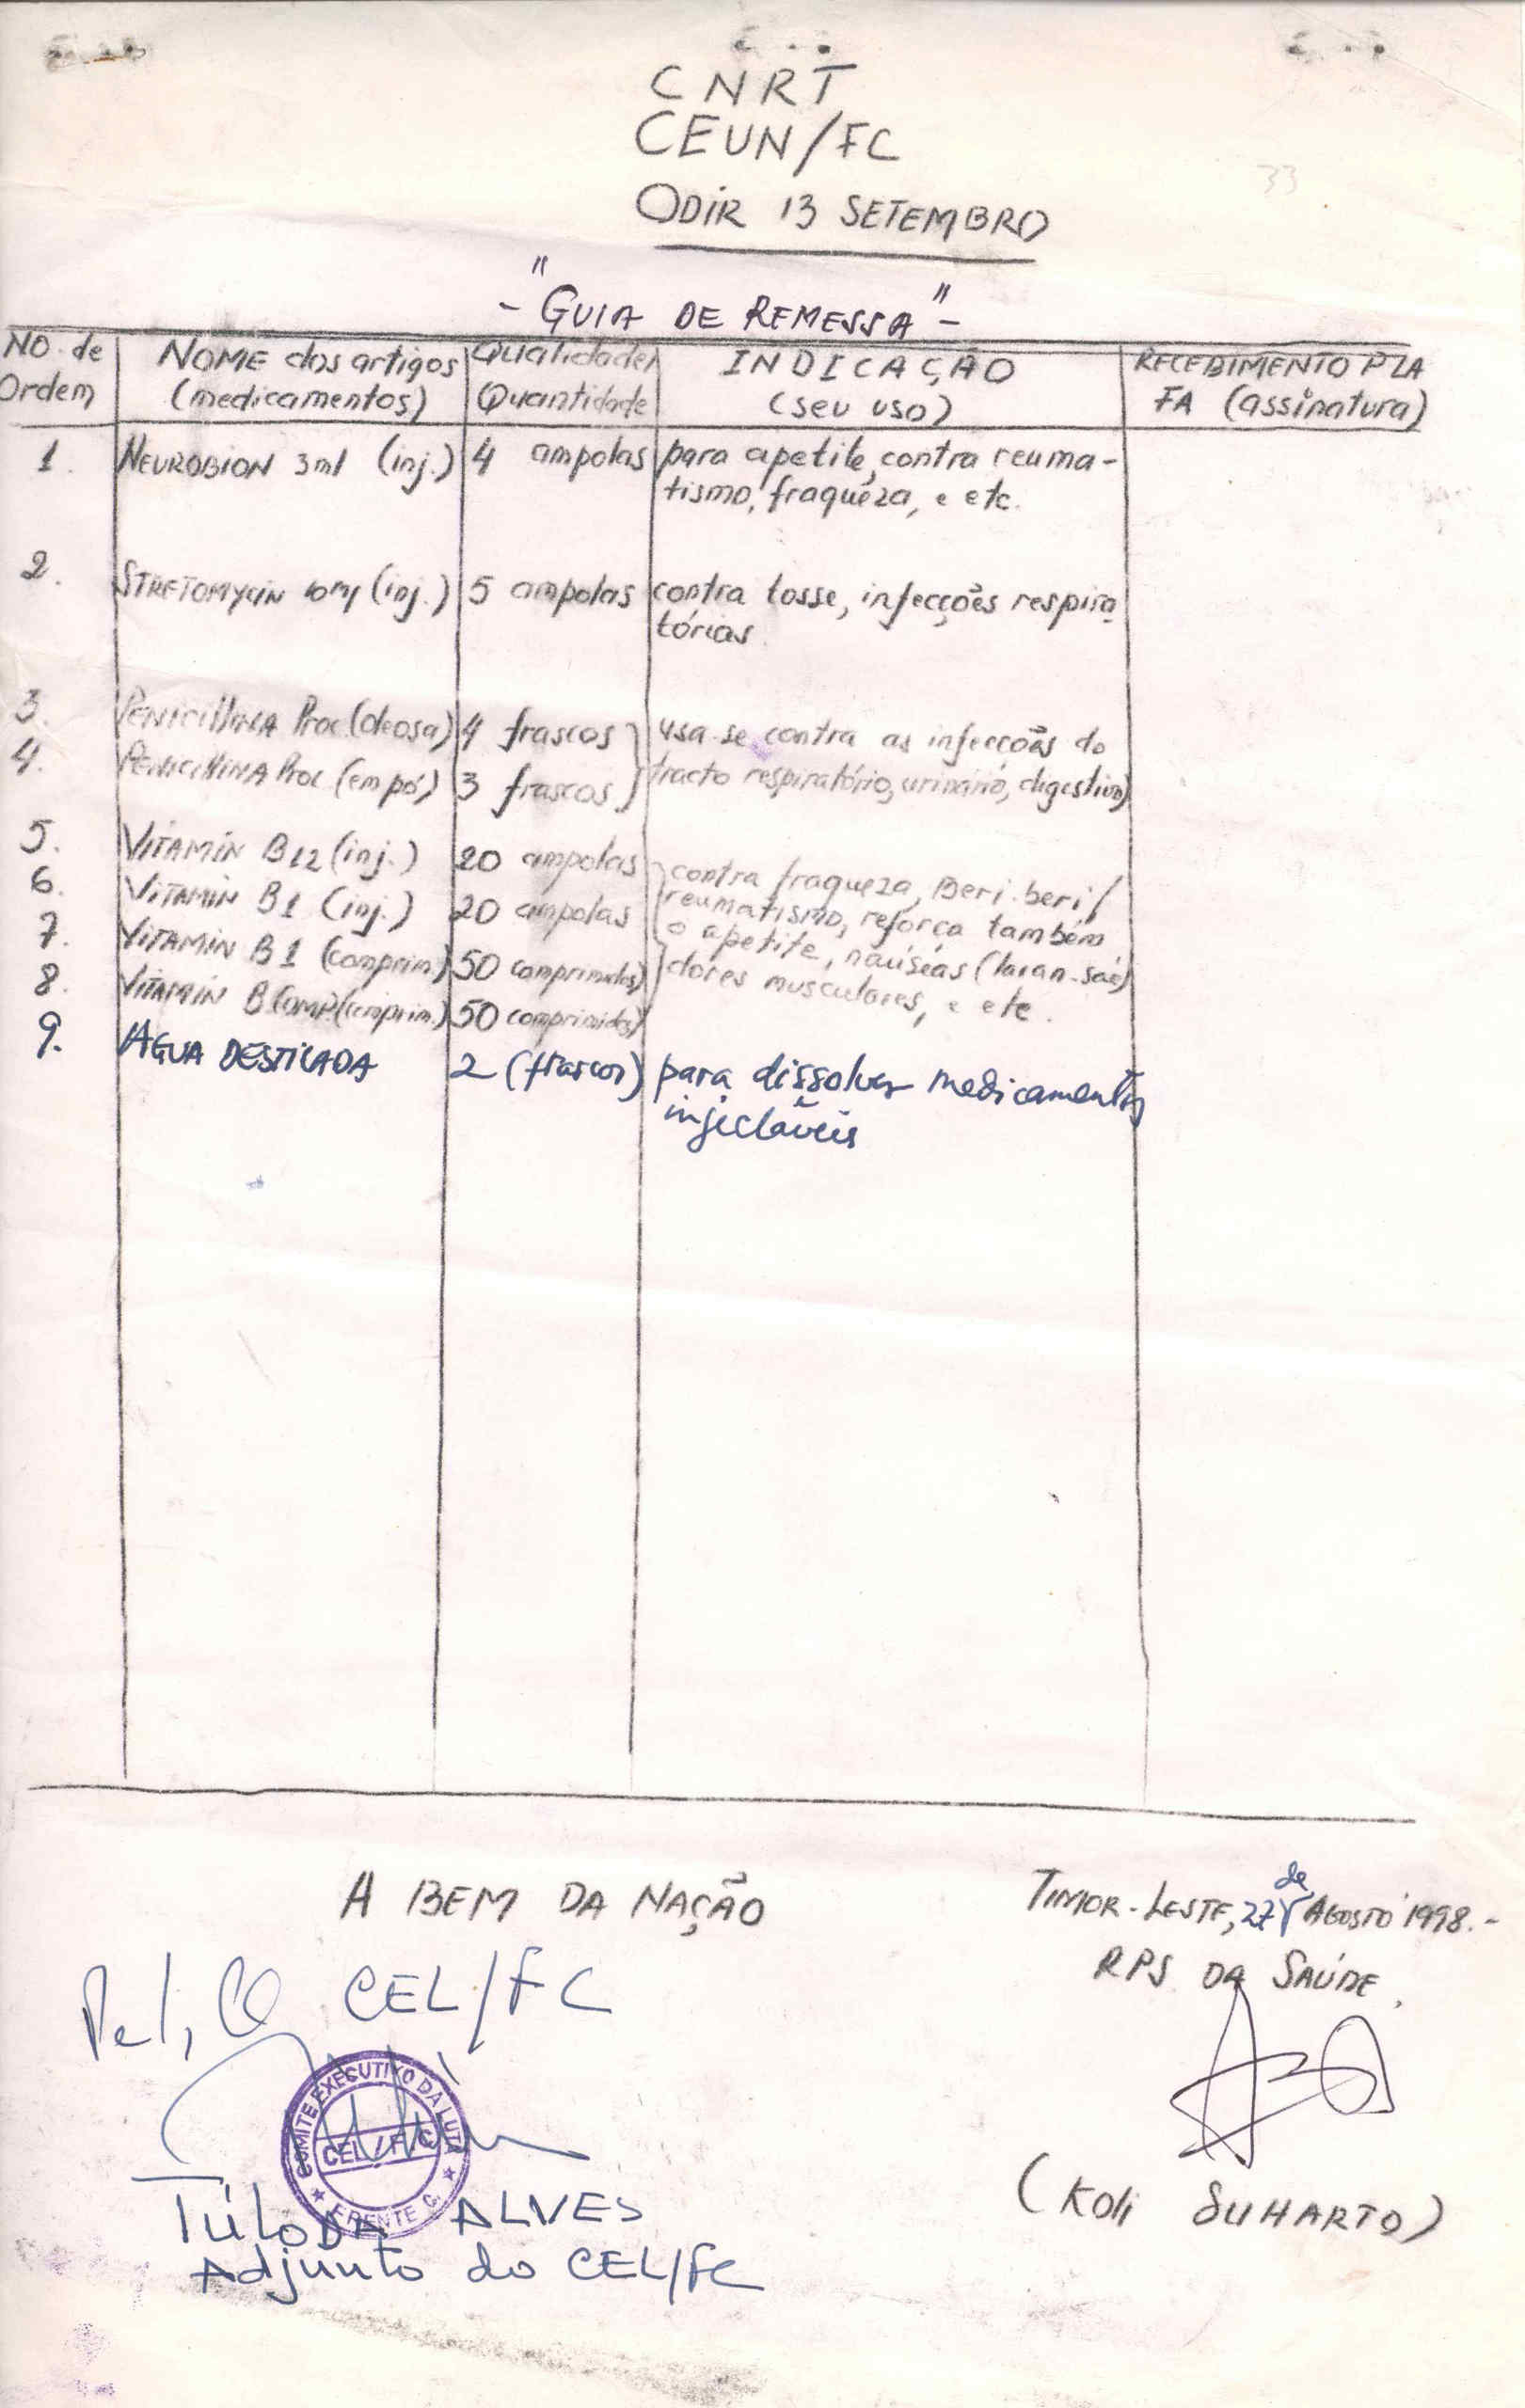 CNRT
CEUN/FC
ODIR 13 SETEMBRO
33
-"GUIA DE REMESSA"-
NO. de Ordem
NOME dos artigos (medicamentos)
Qualidade/ Quantidade
INDICAÇÃO (seu uso)
RECEBIMENTO PLA FA (assinatura)
1. NEUROBION 3ml (inj.) 4 ampolas para apetite, contra reuma-
tismo, fraqueza, e etc.
2. STRETOMYCIN 10ml (inj.) 5 ampolas contra tosse, infecções respira
tórias.
3. PENICILLINA Proc. (oleosa) 4 frascos usa-se contra as infecções do
4. PENICILLINA Proc (em pó) 3 frascos tracto respiratório, urinário, digestivo)
5. VITAMIN B12 (inj.) 20 ampolas contra fraqueza, Beri-beri/
6. VITAMIN B1 (inj.) 20 ampolas reumatismo, reforça também
7. VITAMIN B1 (comprim.) 50 comprimidos) o apetite, náuséas (laran-saé)
8. VITAMIN B COMP. (comprim.) 50 comprimidos) dores musculares, e etc.
9. AGUA DESTILADA 2 (frascos) para dissolver medicamentos
injectáveis
A BEM DA NAÇÃO
TIMOR-LESTE, 27 de AGOSTO 1998.-
RPS DA SAÚDE
Pel, CEL/FC
COMITE EXECUTIVO DA LUTA
CEL/F.C.
FRENTE C.
TÚLODA ALVES
Adjunto do CEL/FC
(Koli SUHARTO)